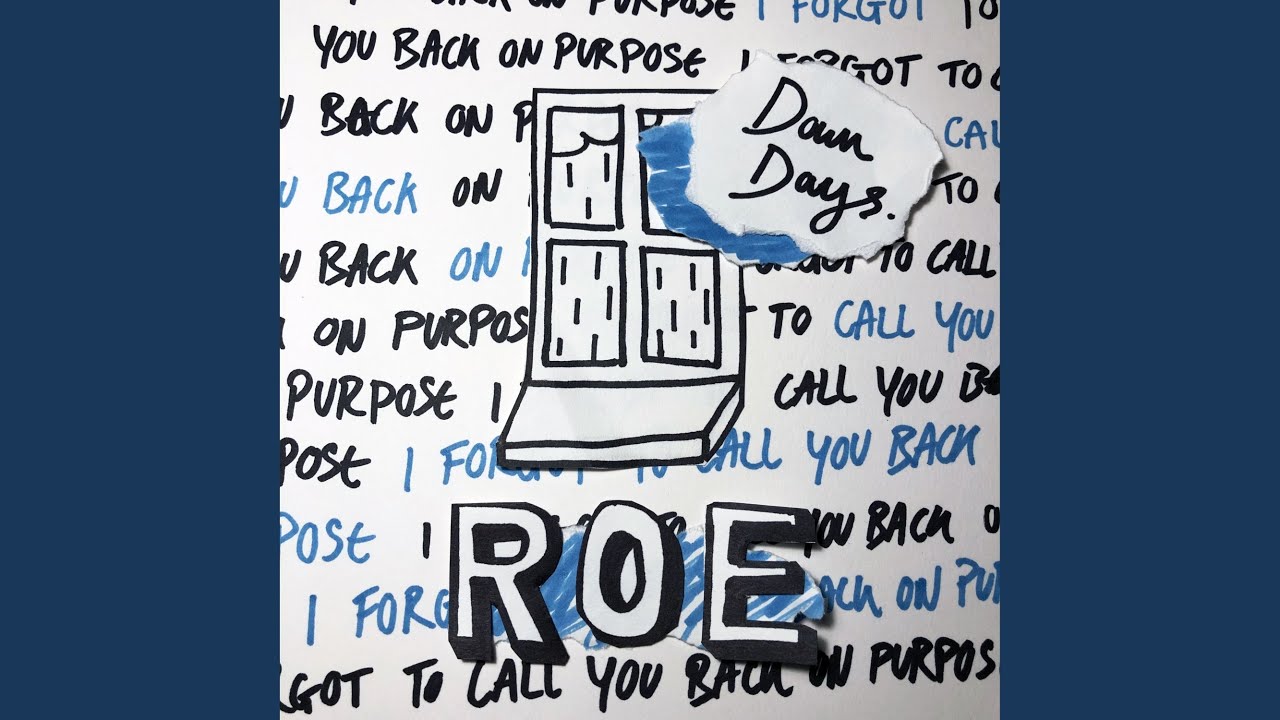 BACK ON PURPOSE I FORGOT TO
YOU BACK ON PURPOSE I FORGOT TO
Down
Days.
BACK ON CALL
BACK ON TO
BACK ON TO CALL
ON PURPOSE TO CALL YOU
PURPOSE I CALL YOU
I FORGOT TO CALL YOU BACK
I YOU BACK
ROE
I BACK ON
TO CALL YOU BACK ON PURPOSE